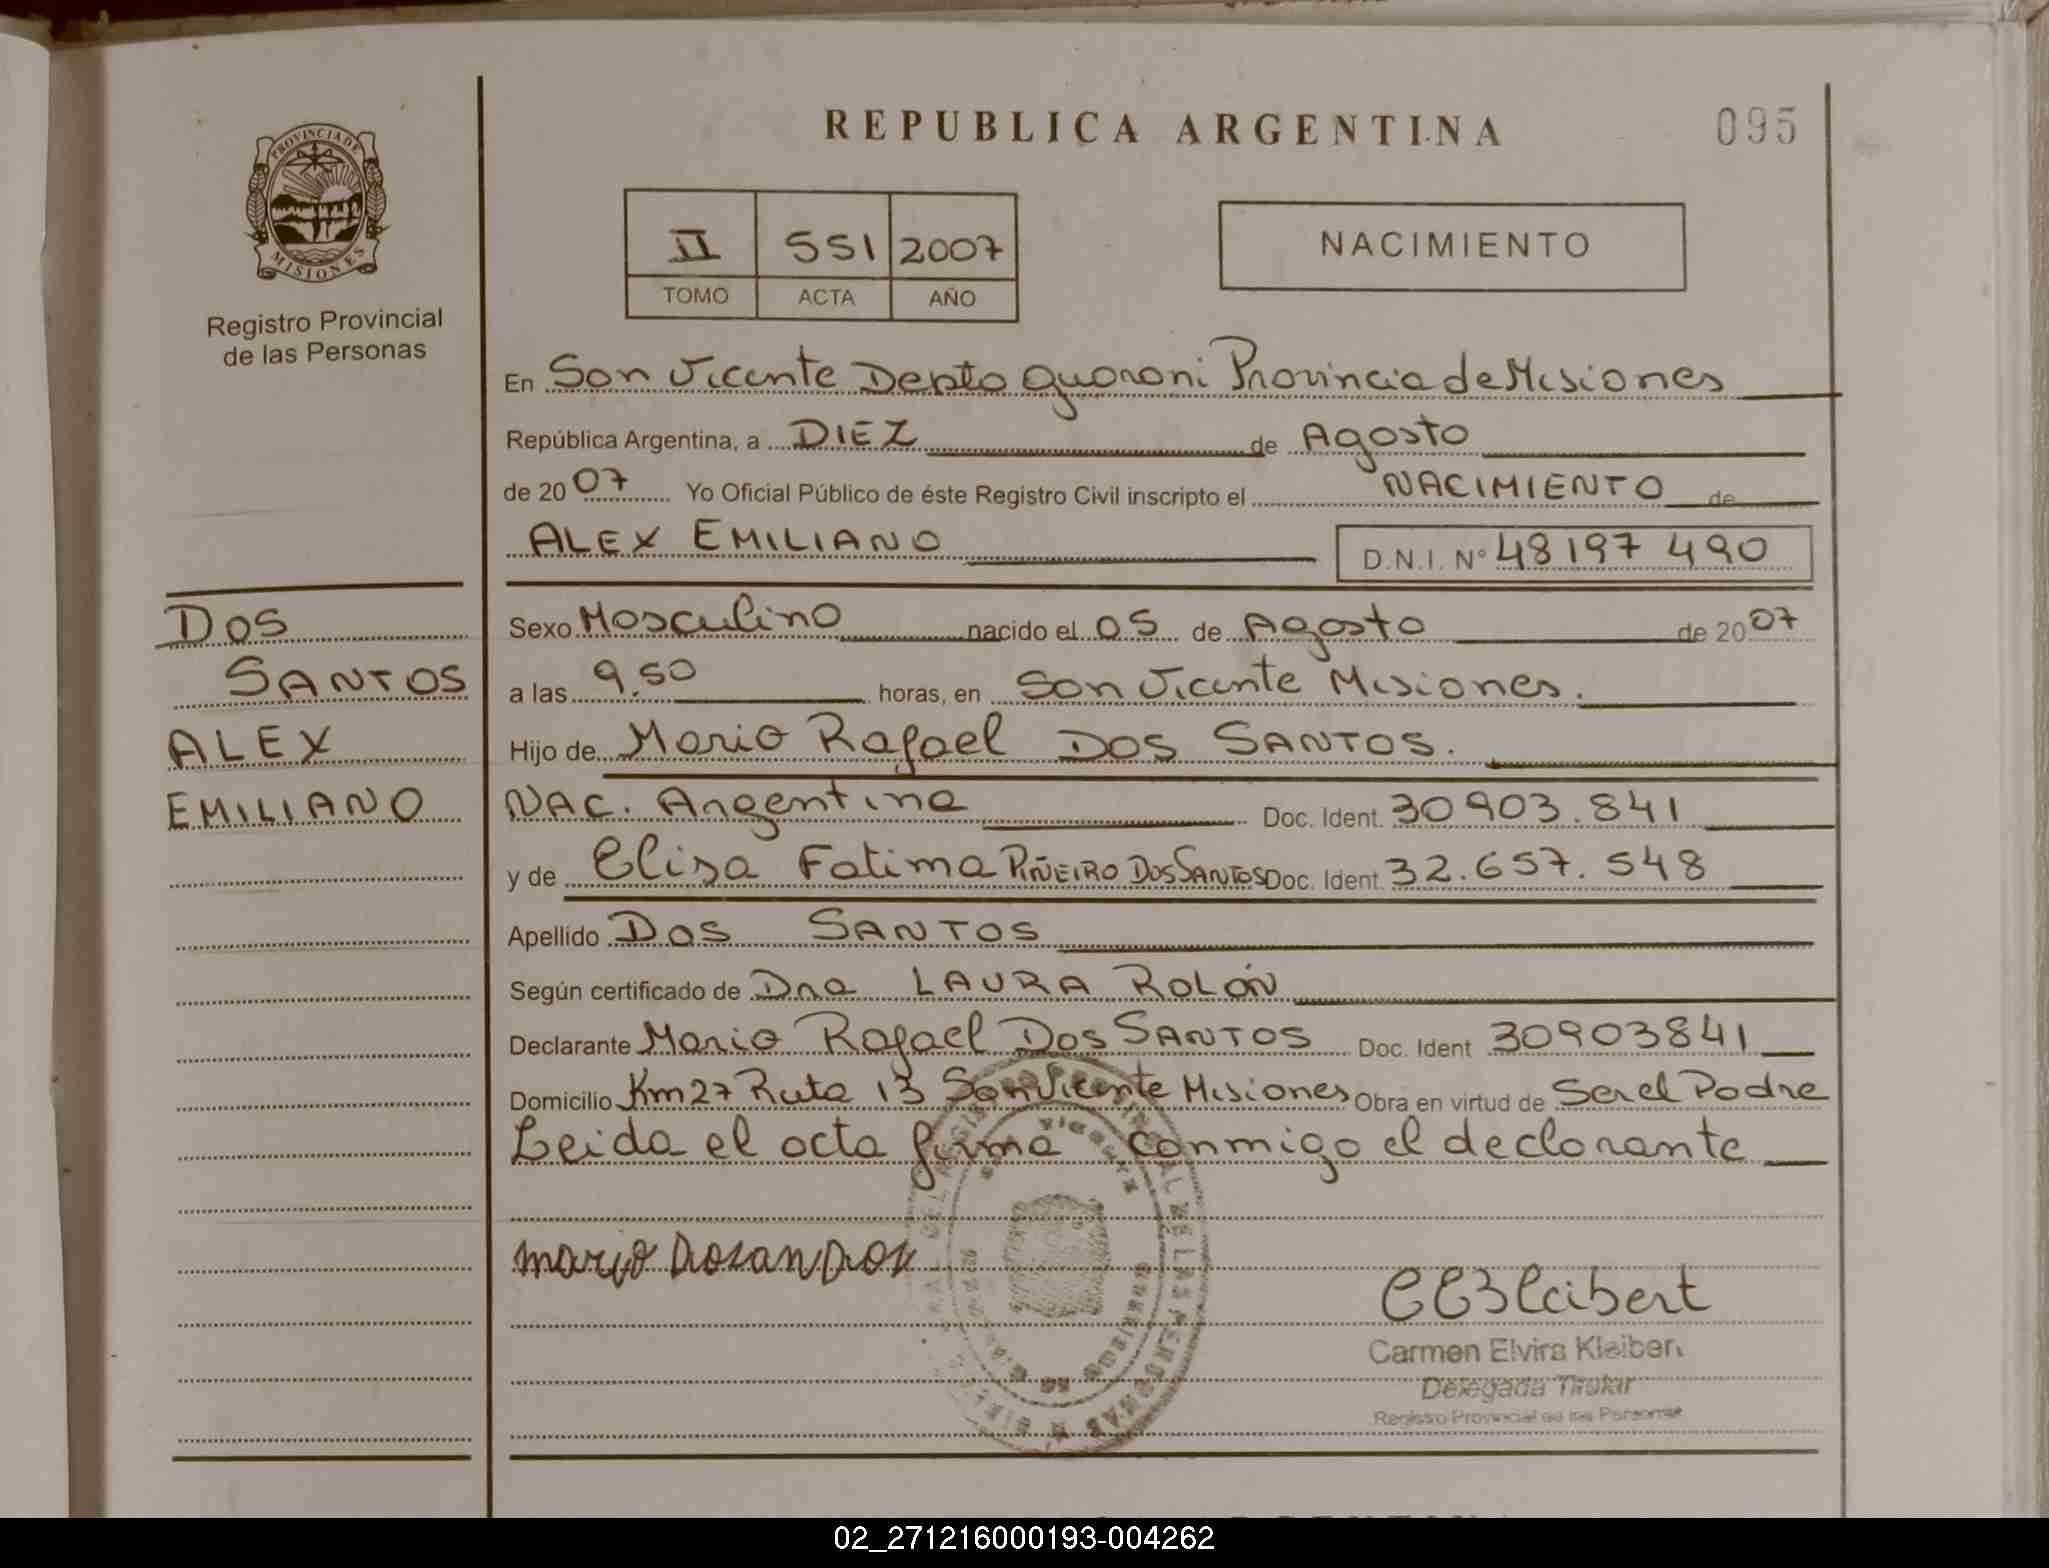 REPUBLICA ARGENTINA
095
PROVINCIA DE
MISIONES
Registro Provincial
de las Personas
II 551 2007
TOMO ACTA AÑO
NACIMIENTO
En San Vicente Depto Guarani Provincia de Misiones
República Argentina, a DIEZ de Agosto
de 2007 Yo Oficial Público de éste Registro Civil inscripto el NACIMIENTO de
ALEX EMILIANO D.N.I. Nº 48197 490
DOS
SANTOS
ALEX
EMILIANO
Sexo Masculino nacido el 05 de Agosto de 2007
a las 9.50 horas, en San Vicente Misiones.
Hijo de Mario Rafael DOS SANTOS.
NAC. Argentina Doc. Ident. 30903.841
y de Elisa Fatima PIÑEIRO DOS SANTOS Doc. Ident. 32.657.548
Apellido DOS SANTOS
Según certificado de Dra LAURA ROLÓN
Declarante Mario Rafael DOS SANTOS Doc. Ident 30903841
Domicilio Km27 Ruta 13 San Vicente Misiones Obra en virtud de Ser el Padre
Leida el acta firma conmigo el declarante
mario dosandos
CEKleibert
Carmen Elvira Kleibert
Delegada Titular
Registro Provincial de las Personas
02_271216000193-004262